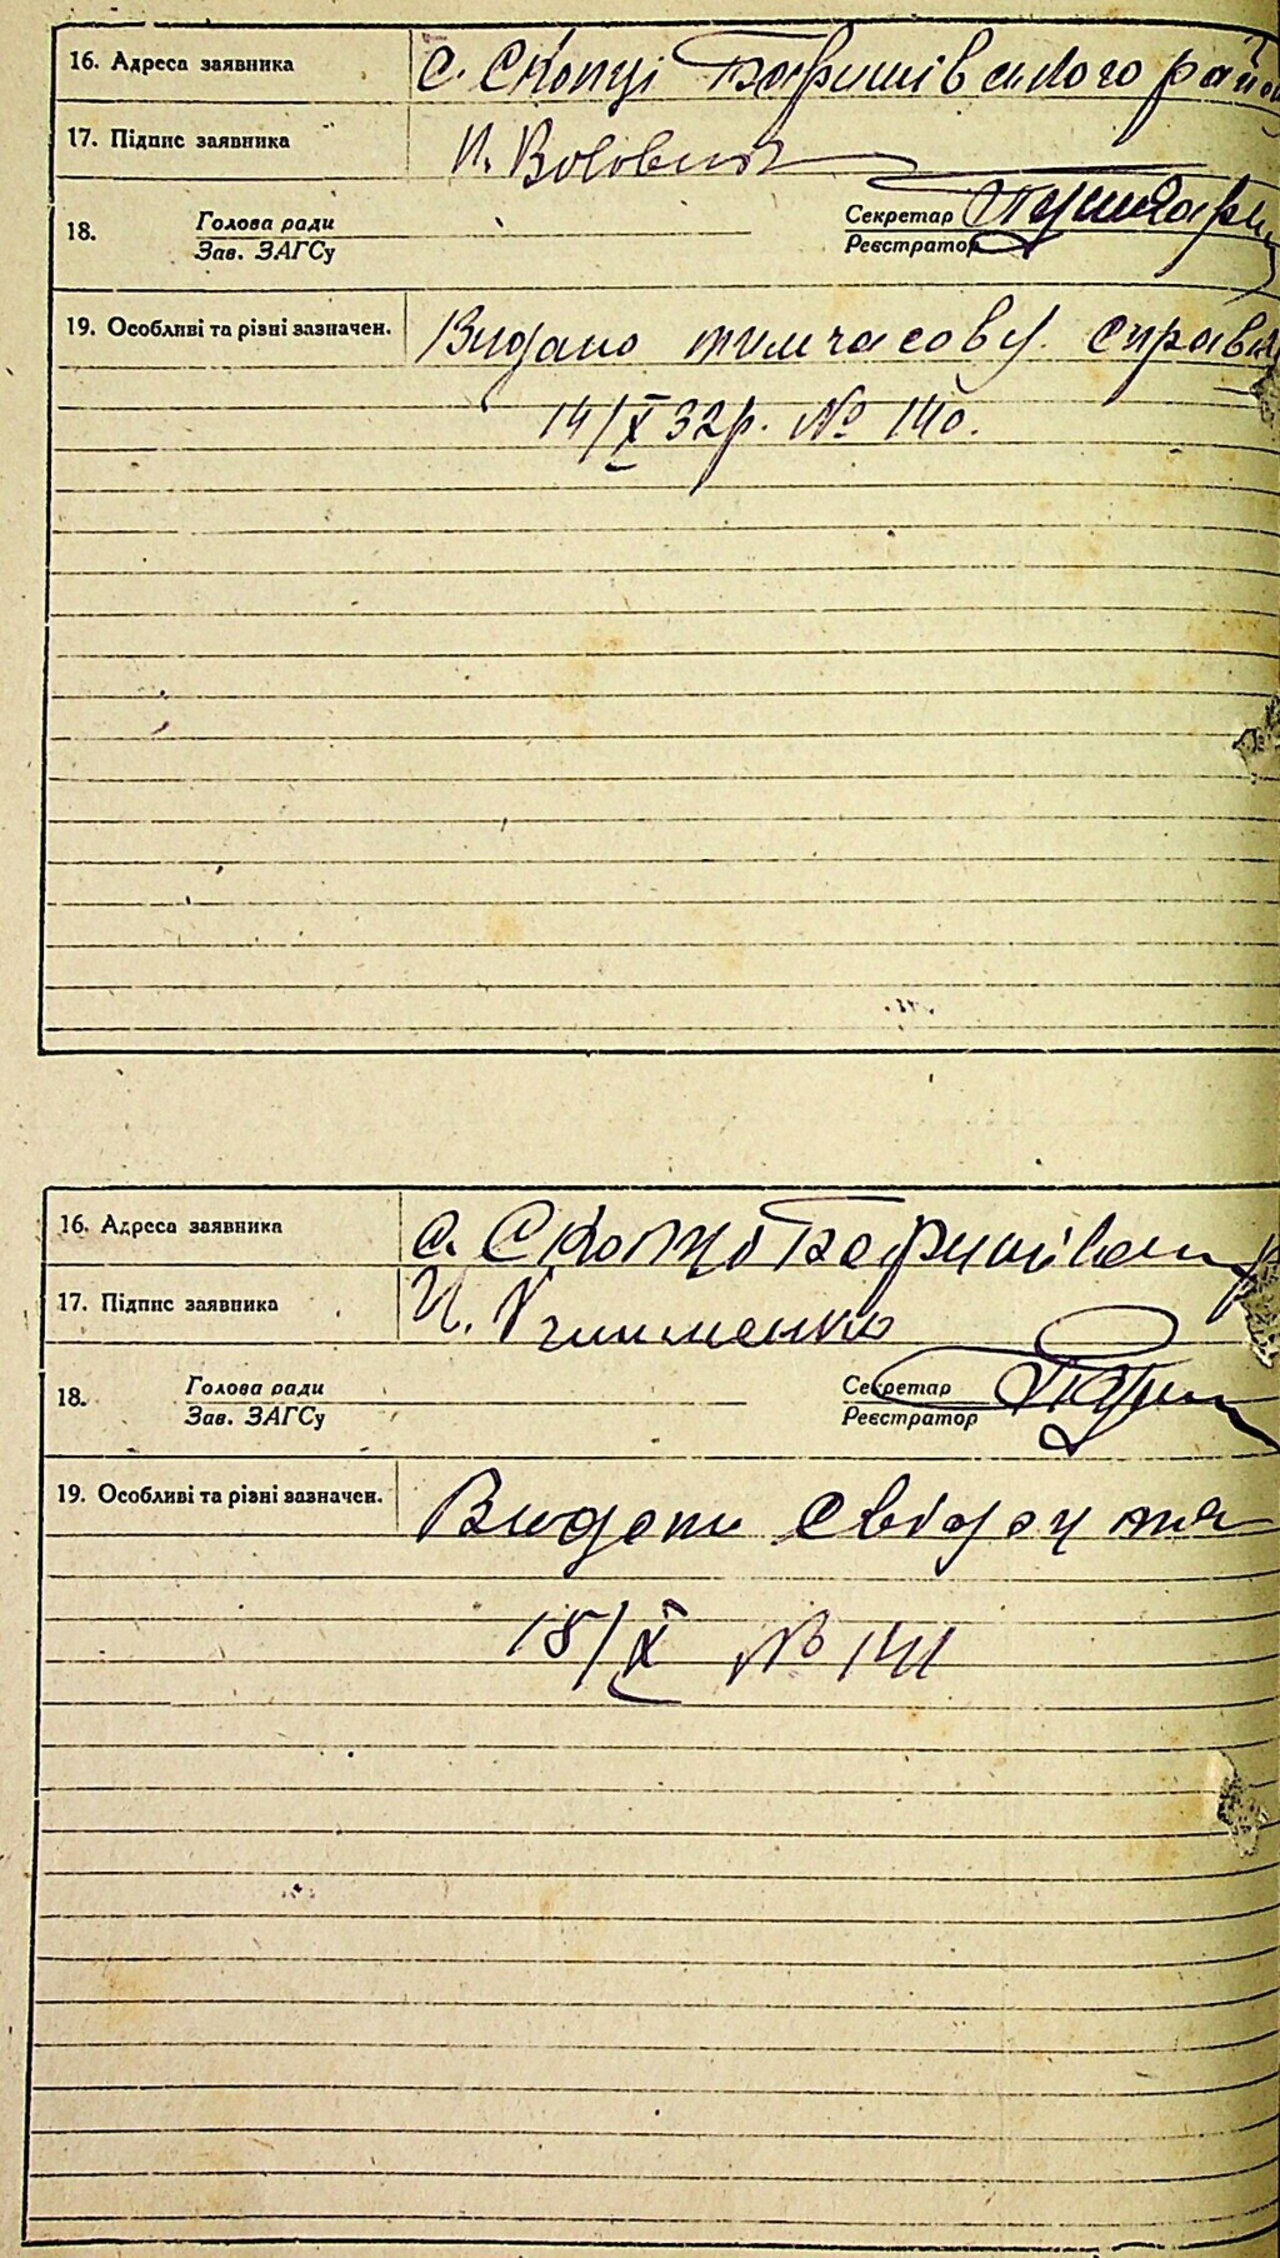 16. Адреса заявника С. Скопці Баришівського рай
17. Підпис заявника И. Воловик
18. Голова ради Секретар
Зав. ЗАГСу Реєстратор
19. Особливі та різні зазначен. Видано тимчасову справк
14/X 32р. № 140.
16. Адреса заявника С. Скопці Баришівськ
17. Підпис заявника И.
18. Голова ради Секретар
Зав. ЗАГСу Реєстратор
19. Особливі та різні зазначен. Видано свідоцтво
15/X № 141